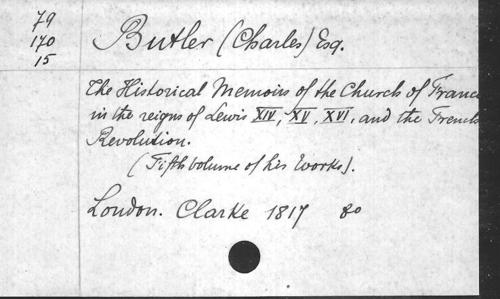 79
170
15
Butler (Charles) Esq.
The Historical Memoirs of the Church of France
in the reigns of Lewis XIV, XV, XVI, and the French
Revolution.
(Fifth volume of his Works).
London. Clarke 1817 80